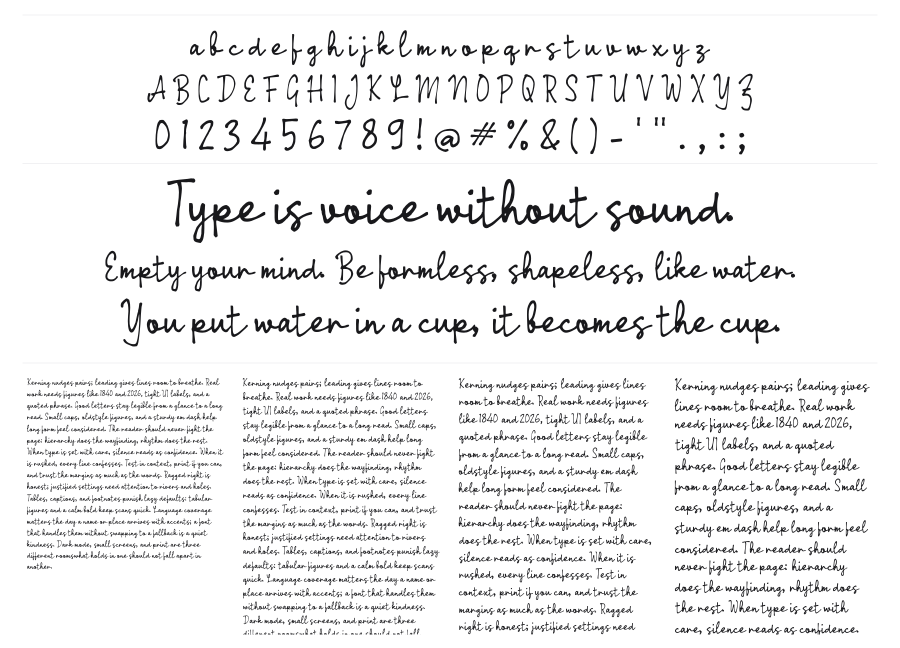 abcdefghijklmnopqrstuvwxyz
ABCDEFGHIJKLMNOPQRSTUVWXYZ
0123456789!@#%&()-'".,:;
Type is voice without sound.
Empty your mind. Be formless, shapeless, like water.
You put water in a cup, it becomes the cup.
Kerning nudges pairs; leading gives lines room to breathe. Real
work needs figures like 1840 and 2026, tight UI labels, and a
quoted phrase. Good letters stay legible from a glance to a long
read. Small caps, oldstyle figures, and a sturdy em dash help
long form feel considered. The reader should never fight the
page: hierarchy does the wayfinding, rhythm does the rest.
When type is set with care, silence reads as confidence. When it
is rushed, every line confesses. Test in context, print if you can,
and trust the margins as much as the words. Ragged right is
honest; justified settings need attention to rivers and holes.
Tables, captions, and footnotes punish lazy defaults: tabular
figures and a calm bold keep scans quick. Language coverage
matters the day a name or place arrives with accents; a font
that handles them without swapping to a fallback is a quiet
kindness. Dark mode, small screens, and print are three
different rooms; what holds in one should not fall apart in
another.
Kerning nudges pairs; leading gives lines room to
breathe. Real work needs figures like 1840 and 2026,
tight UI labels, and a quoted phrase. Good letters
stay legible from a glance to a long read. Small caps,
oldstyle figures, and a sturdy em dash help long
form feel considered. The reader should never fight
the page: hierarchy does the wayfinding, rhythm
does the rest. When type is set with care, silence
reads as confidence. When it is rushed, every line
confesses. Test in context, print if you can, and trust
the margins as much as the words. Ragged right is
honest; justified settings need attention to rivers
and holes. Tables, captions, and footnotes punish lazy
defaults: tabular figures and a calm bold keep scans
quick. Language coverage matters the day a name or
place arrives with accents; a font that handles them
without swapping to a fallback is a quiet kindness.
Dark mode, small screens, and print are three
different rooms; what holds in one should not fall
Kerning nudges pairs; leading gives lines
room to breathe. Real work needs figures
like 1840 and 2026, tight UI labels, and a
quoted phrase. Good letters stay legible
from a glance to a long read. Small caps,
oldstyle figures, and a sturdy em dash
help long form feel considered. The
reader should never fight the page:
hierarchy does the wayfinding, rhythm
does the rest. When type is set with care,
silence reads as confidence. When it is
rushed, every line confesses. Test in
context, print if you can, and trust the
margins as much as the words. Ragged
right is honest; justified settings need
Kerning nudges pairs; leading gives
lines room to breathe. Real work
needs figures like 1840 and 2026,
tight UI labels, and a quoted
phrase. Good letters stay legible
from a glance to a long read. Small
caps, oldstyle figures, and a
sturdy em dash help long form feel
considered. The reader should
never fight the page: hierarchy
does the wayfinding, rhythm does
the rest. When type is set with
care, silence reads as confidence.